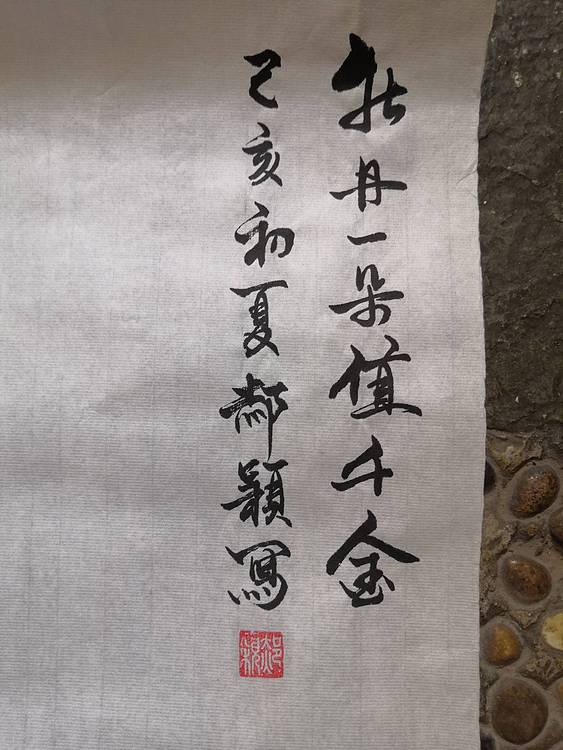 牡丹一朵值千金
己亥初夏郝穎寫